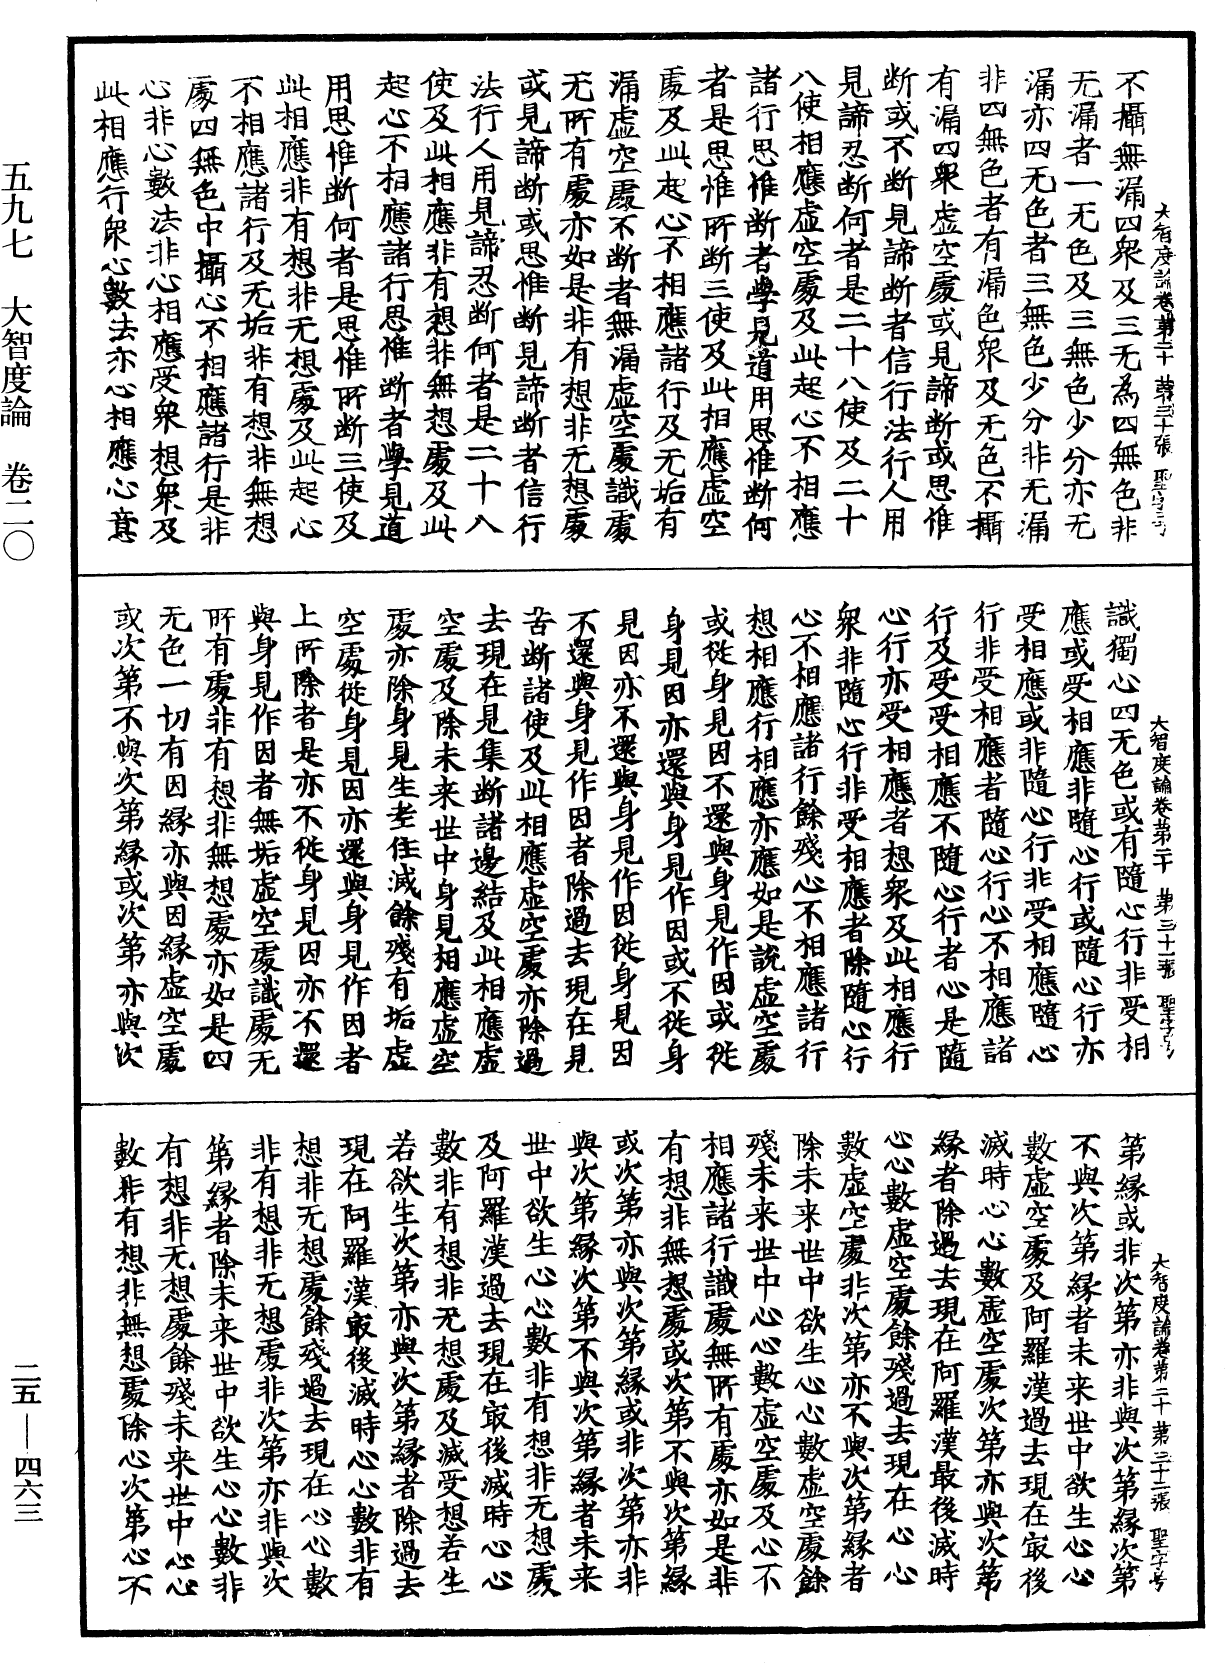 大智度論卷第二十 第三十張 聖字号
不攝無漏四衆及三无為四無色非
无漏者一无色及三無色少分亦无
漏亦四无色者三無色少分非无漏
非四無色者有漏色衆及无色不攝
有漏四衆虛空處或見諦断或思惟
断或不断見諦断者信行法行人用
見諦忍断何者是二十八使及二十
八使相應虛空處及此起心不相應
諸行思惟断者學見道用思惟断何
者是思惟所断三使及此相應虛空
處及此起心不相應諸行及无垢有
漏虛空處不断者無漏虛空處識處
无所有處亦如是非有想非无想處
或見諦断或思惟断見諦断者信行
法行人用見諦忍断何者是二十八
使及此相應非有想非無想處及此
起心不相應諸行思惟断者學見道
用思惟断何者是思惟所断三使及
此相應非有想非无想處及此起心
不相應諸行及无垢非有想非無想
處四無色中攝心不相應諸行是非
心非心數法非心相應受衆想衆及
此相應行衆心數法亦心相應心意
大智度論卷第二十 第三十一張 聖字号
識獨心四无色或有隨心行非受相
應或受相應非隨心行或隨心行亦
受相應或非隨心行非受相應隨心
行非受相應者隨心行心不相應諸
行及受受相應不隨心行者心是隨
心行亦受相應者想衆及此相應行
衆非隨心行非受相應者除隨心行
心不相應諸行餘殘心不相應諸行
想相應行相應亦應如是說虛空處
或從身見因不還與身見作因或從
身見因亦還與身見作因或不從身
見因亦不還與身見作因從身見因
不還與身見作因者除過去現在見
苦断諸使及此相應虛空處亦除過
去現在見集断諸邊結及此相應虛
空處及除未来世中身見相應虛空
處亦除身見生老住滅餘殘有垢虛
空處從身見因亦還與身見作因者
上所除者是亦不從身見因亦不還
與身見作因者無垢虛空處識處无
所有處非有想非無想處亦如是四
无色一切有因緣亦與因緣虛空處
或次第不與次第緣或次第亦與次
大智度論卷第二十 第三十二張 聖字号
第緣或非次第亦非與次第緣次第
不與次第緣者未来世中欲生心心
數虛空處及阿羅漢過去現在㝡後
滅時心心數虛空處次第亦與次第
緣者除過去現在阿羅漢最後滅時
心心數虛空處餘殘過去現在心心
數虛空處非次第亦不與次第緣者
除未来世中欲生心心數虛空處餘
殘未来世中心心數虛空處及心不
相應諸行識處無所有處亦如是非
有想非無想處或次第不與次第緣
或次第亦與次第緣或非次第亦非
與次第緣次第不與次第緣者未来
世中欲生心心數非有想非无想處
及阿羅漢過去現在㝡後滅時心心
數非有想非无想處及滅受想若生
若欲生次第亦與次第緣者除過去
現在阿羅漢㝡後滅時心心數非有
想非无想處餘殘過去現在心心數
非有想非无想處非次第亦非與次
第緣者除未来世中欲生心心數非
有想非无想處餘殘未来世中心心
數非有想非無想處除心次第心不
五九七 大智度論 卷二〇
二五—四六三